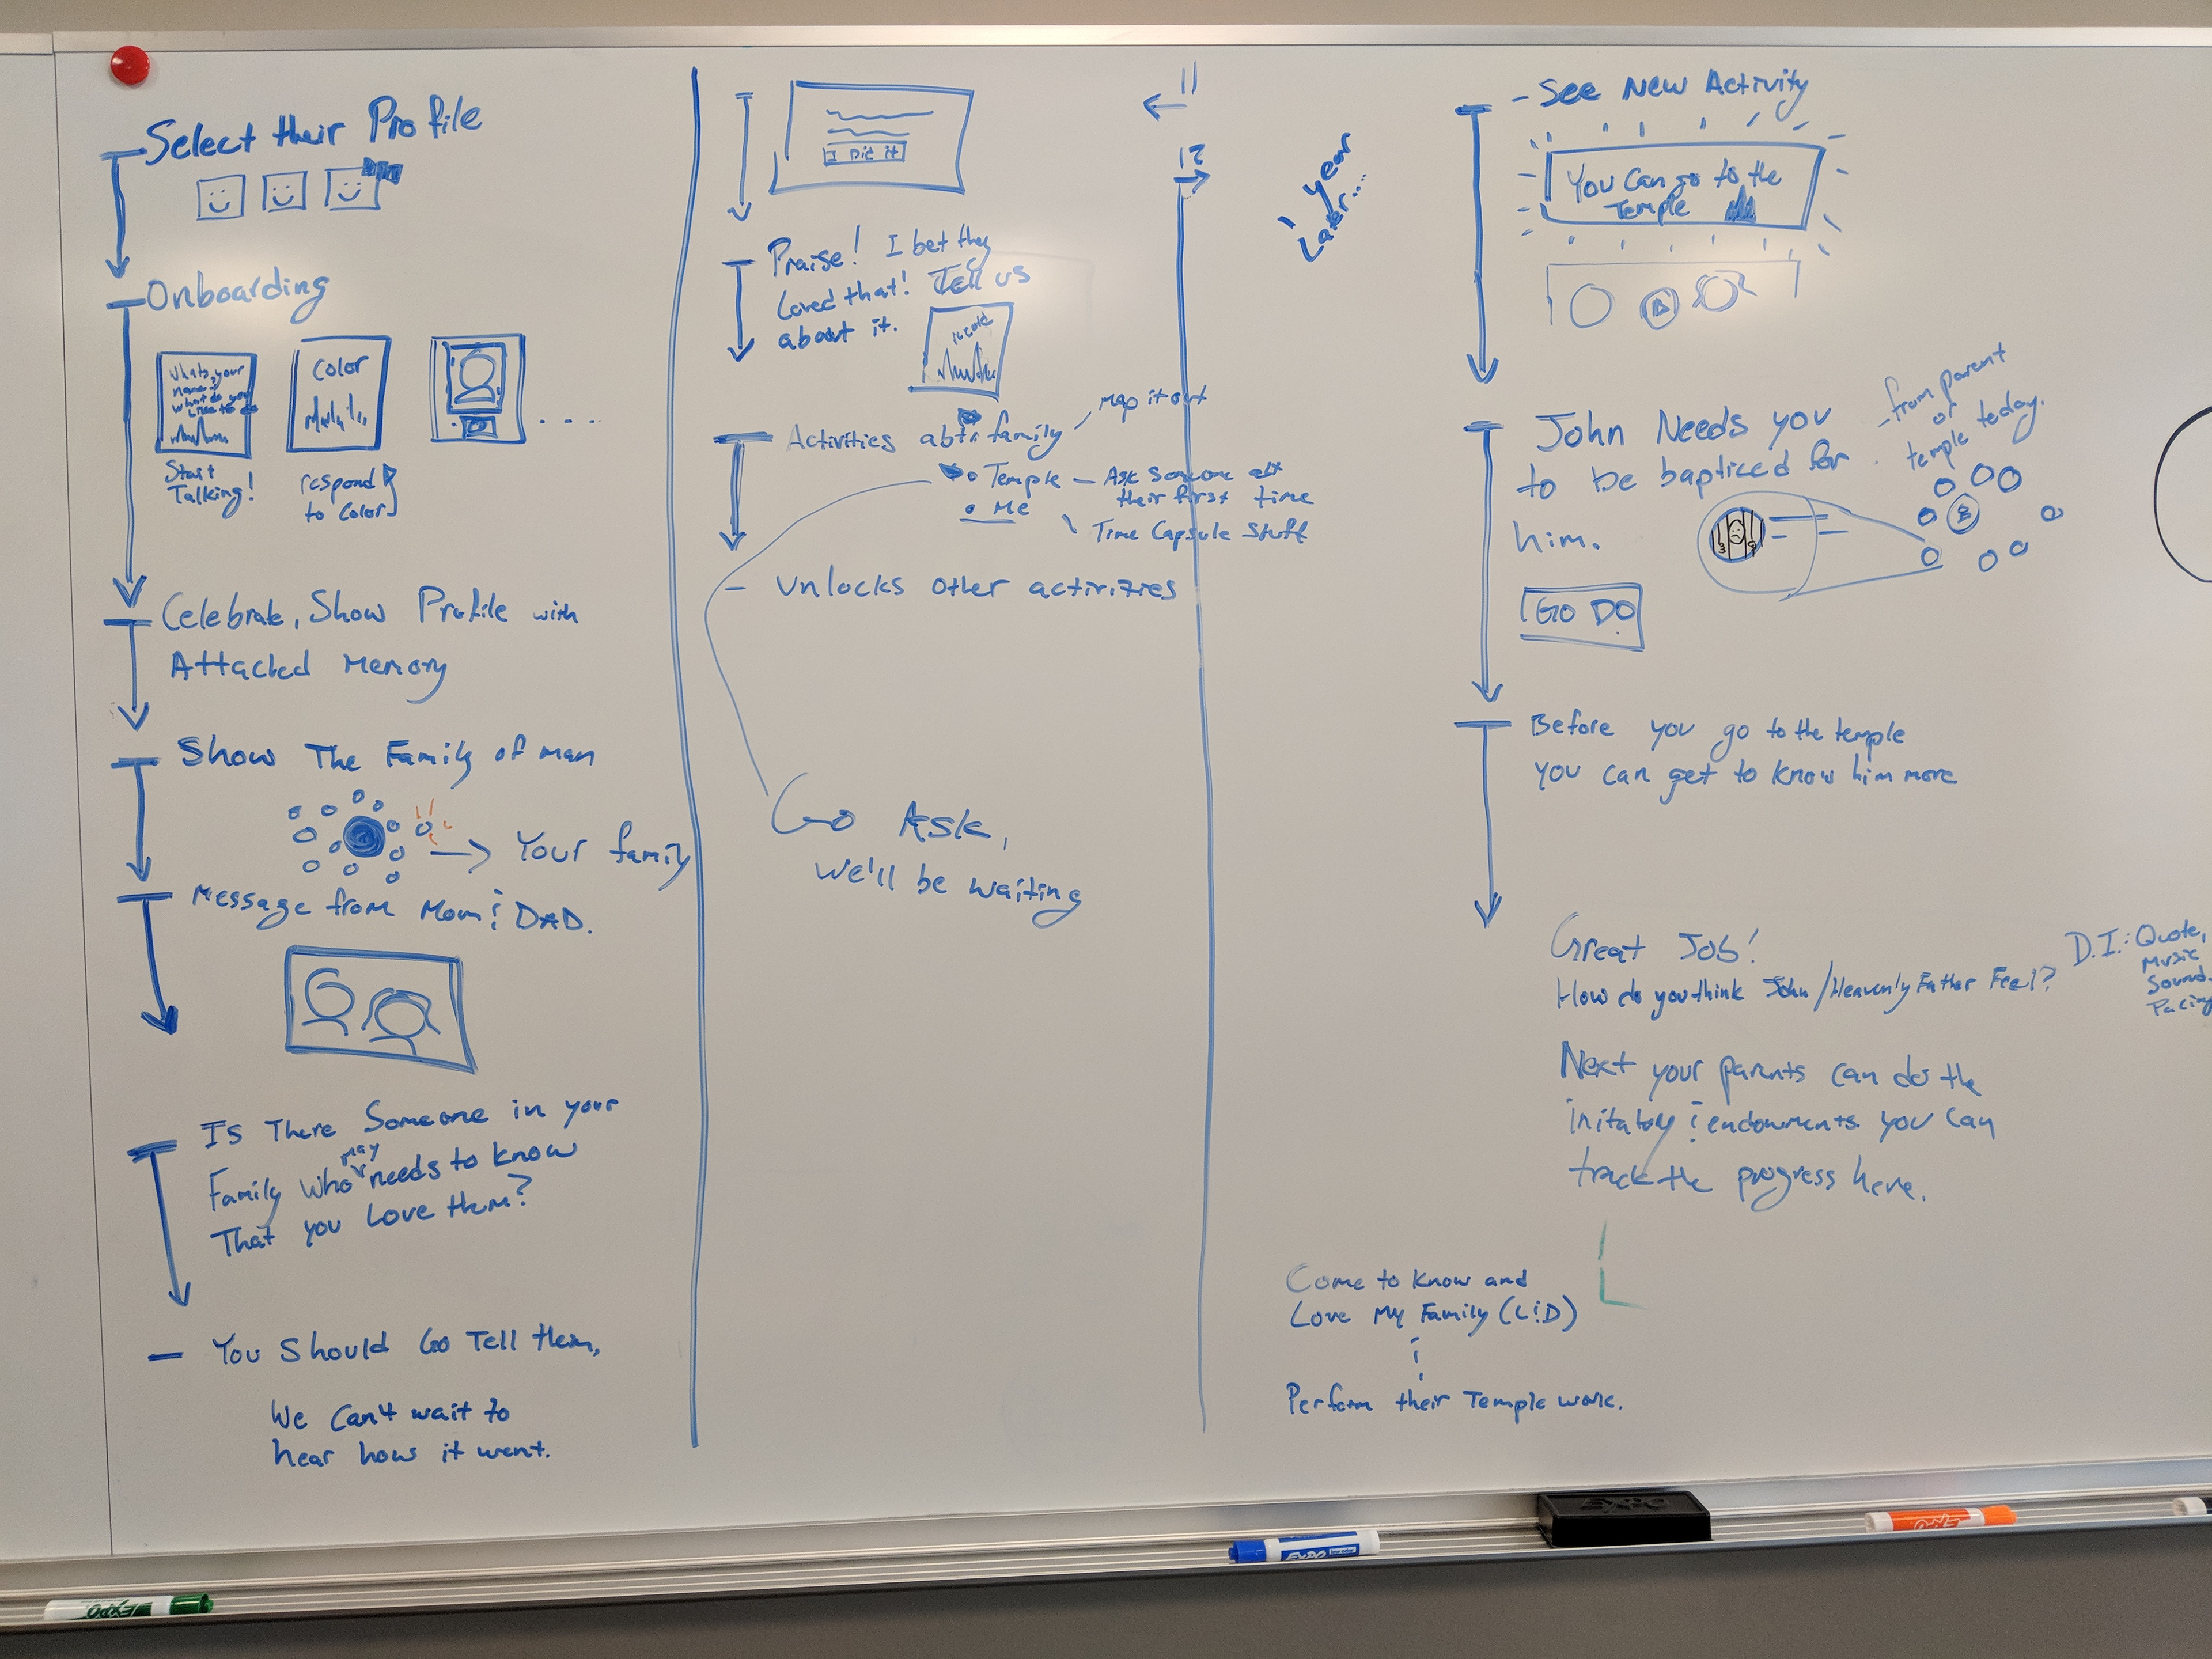 Select their Profile
Onboarding
Whats your
name?
what do you
Like to do
Start
Talking!
Color
respond
to color
Celebrate, Show Profile with
Attached Memory
Show The Family of man
Your family
Message from Mom & DAD.
Is There Someone in your
may
Family who needs to know
That you Love them?
You Should Go Tell them,
We Can't wait to
hear how it went.
I Did it
Praise! I bet they
Loved that! Tell us
about it.
Activities abt family
Map it out
Temple – Ask someone abt
their first time
Me
Time Capsule Stuff
Unlocks other activities
Go Ask,
We'll be waiting
11
12
1 year
Later...
- See New Activity
You Can go to the
Temple
John Needs you
to be bapticed for
him.
- from parent
or
temple today.
GO DO
Before you go to the temple
you can get to know him more
Great Job!
How do you think John/Heavenly Father Feel?
D.I.: Quote,
Music
Sound.
Pacing
Next your parents can do the
initatory & endowments you can
track the progress here.
Come to know and
Love My Family (L&D)
&
Perform their Temple work.
EXPO
EXPO
EXPO
EXPO